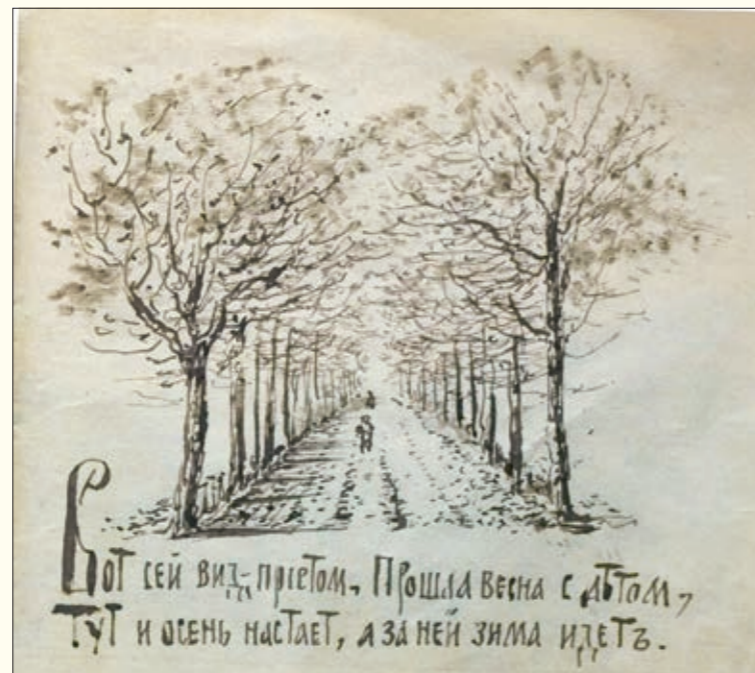 Вот сей вид- прiетом, Прошла весна с лѣтом,
Тут и осень настает, а за ней зима идетъ.